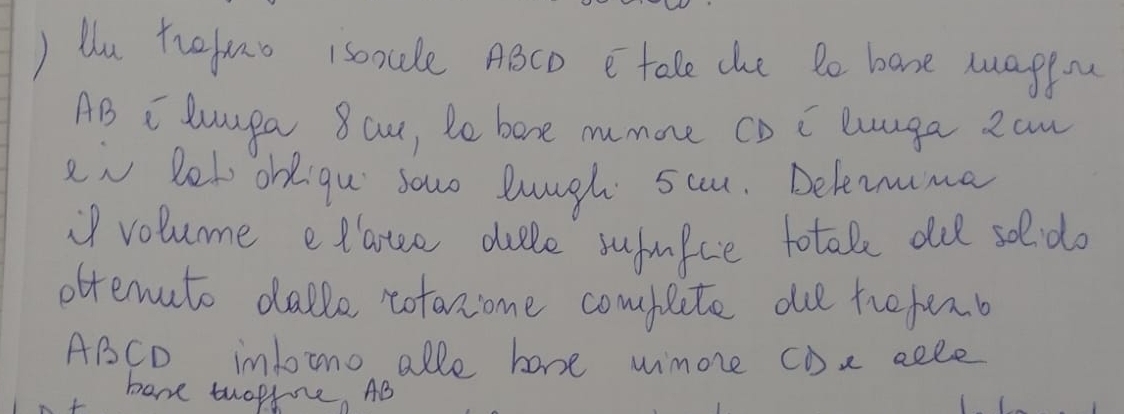 ) Un trapezio isoscele ABCD è tale che la base maggiore
AB è lunga 8 cm, la base minore CD è lunga 2 cm
e i lati obliqui sono lunghi 5 cm. Determina
il volume e l'area della superficie totale del solido
ottenuto dalla rotazione completa del trapezio
ABCD intorno alla base minore CD e alla
base maggiore AB